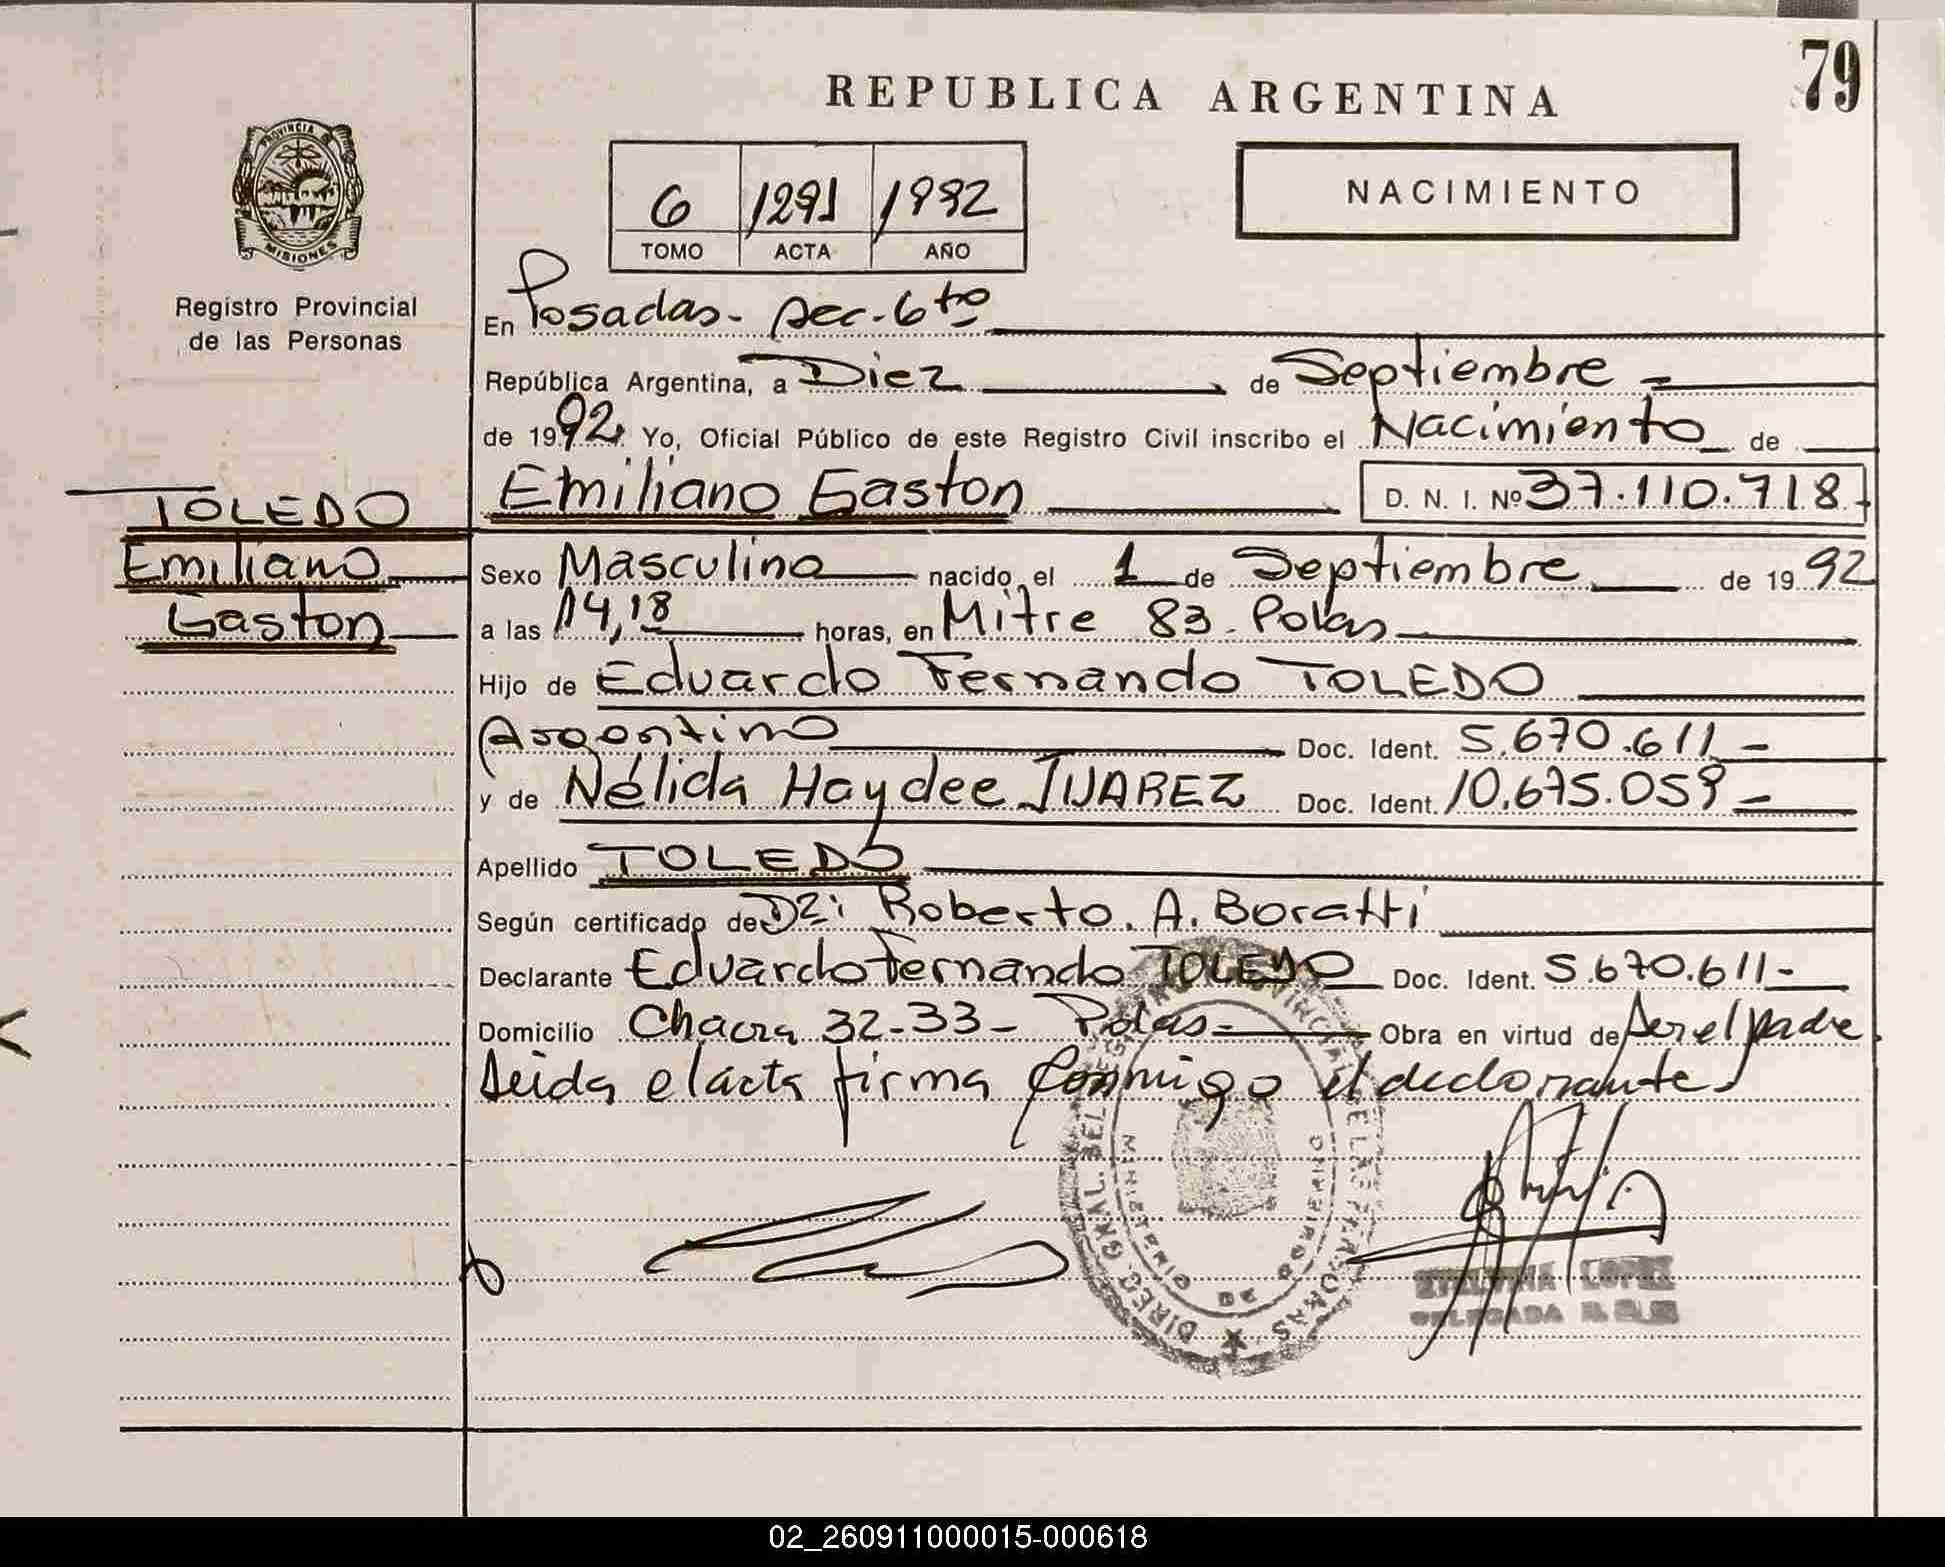 79
REPUBLICA ARGENTINA
PROVINCIA DE
MISIONES
Registro Provincial
de las Personas
6 1291 1992
TOMO ACTA AÑO
NACIMIENTO
En Posadas - Sec. 6to
República Argentina, a Diez de Septiembre
de 1992 Yo, Oficial Público de este Registro Civil inscribo el Nacimiento de
Emiliano Gaston D. N. I. Nº 37.110.718.-
TOLEDO
Emiliano
Gaston
Sexo Masculino nacido el 1 de Septiembre de 1992
a las 14,18 horas, en Mitre 83 - Pdas
Hijo de Eduardo Fernando TOLEDO
Argentino Doc. Ident. 5.670.611 -
y de Nélida Haydee JUAREZ Doc. Ident. 10.675.059 -
Apellido TOLEDO
Según certificado de Dr: Roberto. A. Boratti
Declarante Eduardo Fernando TOLEDO Doc. Ident. 5.670.611 -
Domicilio Chacra 32-33 - Pdas - Obra en virtud de ser el padre
Leida el acta firma conmigo el declarante
DIREC. GRAL. DEL REGISTRO PROVINCIAL DE LAS PERSONAS
MINISTERIO DE GOBIERNO
LOPEZ
DELEGADA
02_260911000015-000618